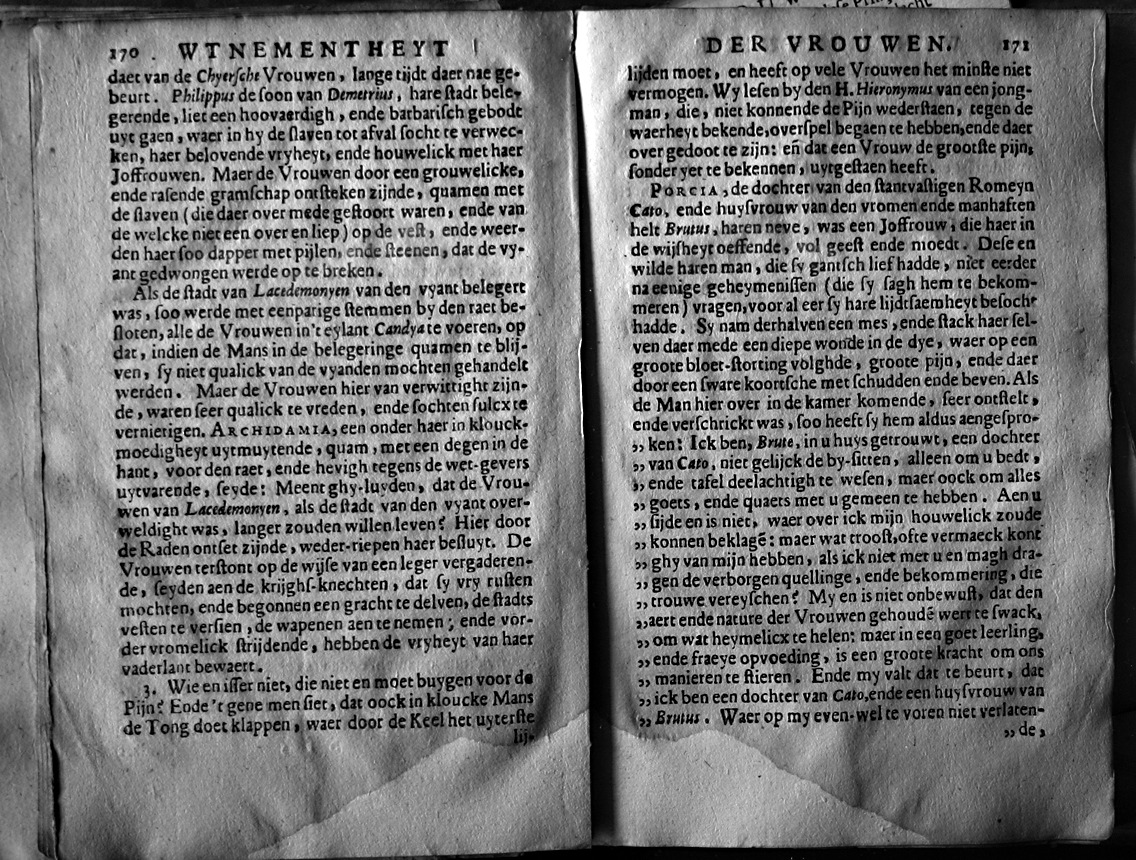 170 . WTNEMENTHEYT
daet van de Chyerſche Vrouwen, lange tijdt daer nae ge-
beurt. Philippus de ſoon van Demetrius, hare ſtadt bele-
gerende, liet een hoovaerdigh, ende barbariſch gebodt
uyt gaen, waer in hy de ſlaven tot afval ſocht te verwec-
ken, haer belovende vryheyt, ende houwelick met haer
Joffrouwen. Maer de Vrouwen door een grouwelicke,
ende raſende gramſchap ontſteken zijnde, quamen met
de ſlaven (die daer over mede geſtoort waren, ende van
de welcke niet een over en liep) op de veſt, ende weer-
den haer ſoo dapper met pijlen, ende ſteenen, dat de vy-
ant gedwongen werde op te breken.
Als de ſtadt van Lacedemonyen van den vyant belegert
was, ſoo werde met eenparige ſtemmen by den raet be-
ſloten, alle de Vrouwen in't eylant Candya te voeren, op
dat, indien de Mans in de belegeringe quamen te blij-
ven, ſy niet qualick van de vyanden mochten gehandelt
werden. Maer de Vrouwen hier van verwittight zijn-
de, waren ſeer qualick te vreden, ende ſochten ſulcx te
vernietigen. ARCHIDAMIA, een onder haer in klouck-
moedigheyt uytmuytende, quam, met een degen in de
hant, voor den raet, ende hevigh tegens de wet-gevers
uytvarende, ſeyde: Meent ghy-luyden, dat de Vrou-
wen van Lacedemonyen, als de ſtadt van den vyant over-
weldight was, langer zouden willen leven? Hier door
de Raden ontſet zijnde, weder-riepen haer beſluyt. De
Vrouwen terſtont op de wijſe van een leger vergaderen-
de, ſeyden aen de krijghſ-knechten, dat ſy vry ruſten
mochten, ende begonnen een gracht te delven, de ſtadts
veſten te verſien, de wapenen aen te nemen; ende vor-
der vromelick ſtrijdende, hebben de vryheyt van haer
vaderlant bewaert.
3. Wie en iſſer niet, die niet en moet buygen voor de
Pijn? Ende 't gene men ſiet, dat oock in kloucke Mans
de Tong doet klappen, waer door de Keel het uyterſte
lij-
DER VROUWEN. 171
lijden moet, en heeft op vele Vrouwen het minſte niet
vermogen. Wy leſen by den H. Hieronymus van een jong-
man, die, niet konnende de Pijn wederſtaen, tegen de
waerheyt bekende, overſpel begaen te hebben, ende daer
over gedoot te zijn: eñ dat een Vrouw de grootſte pijn,
ſonder yet te bekennen, uytgeſtaen heeft.
PORCIA, de dochter van den ſtantvaſtigen Romeyn
Cato, ende huyſvrouw van den vromen ende manhaften
helt Brutus, haren neve, was een Joffrouw, die haer in
de wijſheyt oeffende, vol geeſt ende moedt. Deſe en
wilde haren man, die ſy gantſch lief hadde, niet eerder
na eenige geheymeniſſen (die ſy ſagh hem te bekom-
meren) vragen, voor al eer ſy hare lijdtſaemheyt beſocht
hadde. Sy nam derhalven een mes, ende ſtack haer ſel-
ven daer mede een diepe wonde in de dye, waer op een
groote bloet-ſtorting volghde, groote pijn, ende daer
door een ſware koortſche met ſchudden ende beven. Als
de Man hier over in de kamer komende, ſeer ontſtelt,
ende verſchrickt was, ſoo heeft ſy hem aldus aengeſpro-
„ ken: Ick ben, Brute, in u huys getrouwt, een dochter
„ van Cato, niet gelijck de by-ſitten, alleen om u bedt,
„ ende tafel deelachtigh te weſen, maer oock om alles
„ goets, ende quaets met u gemeen te hebben. Aen u
„ ſijde en is niet, waer over ick mijn houwelick zoude
„ konnen beklagē: maer wat trooſt, ofte vermaeck kont
„ ghy van mijn hebben, als ick niet met u en magh dra-
„ gen de verborgen quellinge, ende bekommering, die
„ trouwe vereyſchen? My en is niet onbewuſt, dat den
„ aert ende nature der Vrouwen gehoudē wert te ſwack,
„ om wat heymelicx te helen: maer in een goet leerling,
„ ende fraeye opvoeding, is een groote kracht om ons
„ manieren te ſtieren. Ende my valt dat te beurt, dat
„ ick ben een dochter van Cato, ende een huyſvrouw van
„ Brutus. Waer op my even-wel te voren niet verlaten-
„ de,